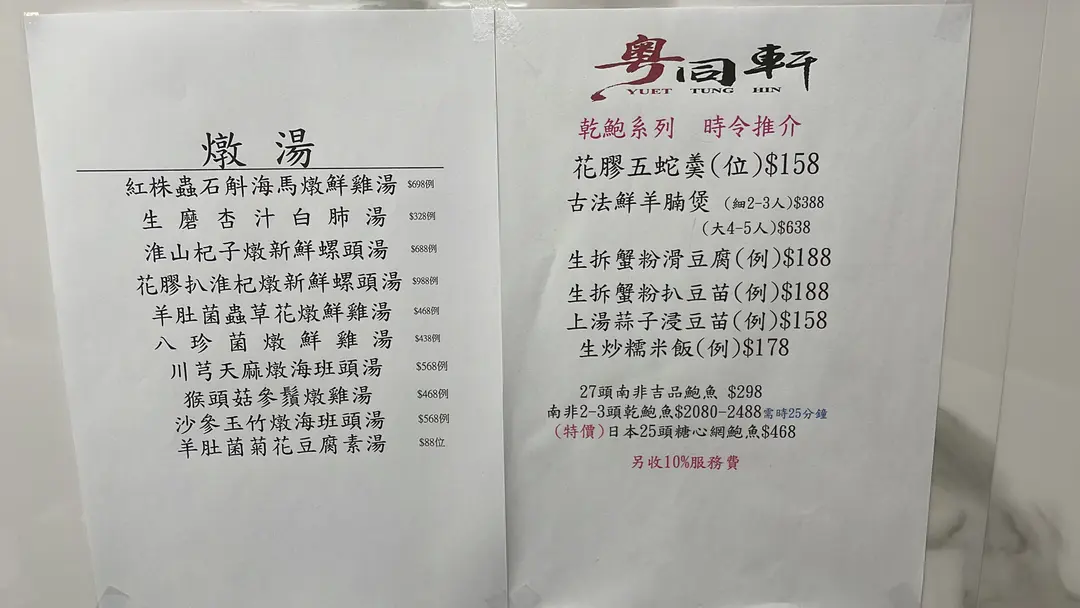 燉湯
紅株蟲石斛海馬燉鮮雞湯 $698例
生磨杏汁白肺湯 $328例
淮山杞子燉新鮮螺頭湯 $688例
花膠扒淮杞燉新鮮螺頭湯 $988例
羊肚菌蟲草花燉鮮雞湯 $468例
八珍菌燉鮮雞湯 $438例
川芎天麻燉海班頭湯 $568例
猴頭菇參鬚燉雞湯 $468例
沙參玉竹燉海班頭湯 $568例
羊肚菌菊花豆腐素湯 $88位
粵同軒
YUET TUNG HIN
乾鮑系列 時令推介
花膠五蛇羹(位)$158
古法鮮羊腩煲 (細2-3人)$388
(大4-5人)$638
生拆蟹粉滑豆腐(例)$188
生拆蟹粉扒豆苗(例)$188
上湯蒜子浸豆苗(例)$158
生炒糯米飯(例)$178
27頭南非吉品鮑魚 $298
南非2-3頭乾鮑魚$2080-2488需時25分鐘
(特價)日本25頭糖心網鮑魚$468
另收10%服務費